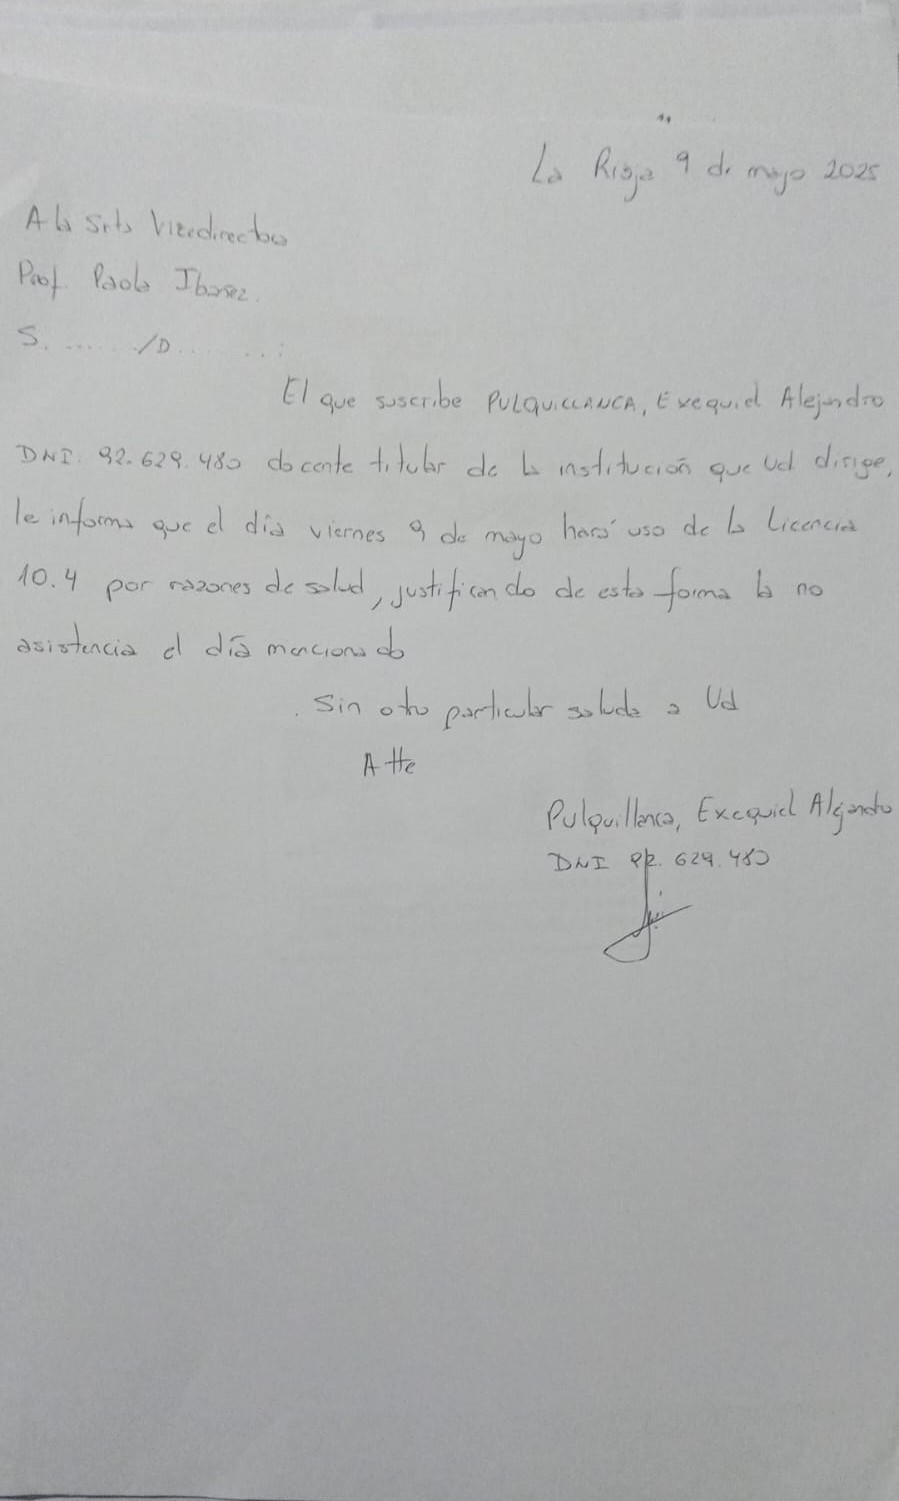 La Rioja 9 de mayo 2025
A la Srta Vicedirectora
Prof. Paola Ibañez.
S. ...... /D ........:
El que suscribe PULQUILLANCA, Exequiel Alejandro
DNI. 92.629.480 docente titular de la institución que Ud dirige,
le informa que el día viernes 9 de mayo hará uso de la Licencia
10.4 por razones de salud, justificando de esta forma la no
asistencia el día mencionado
. Sin otro particular saluda a Ud
Atte
Pulquillanca, Exequiel Alejandro
DNI 92.629.480